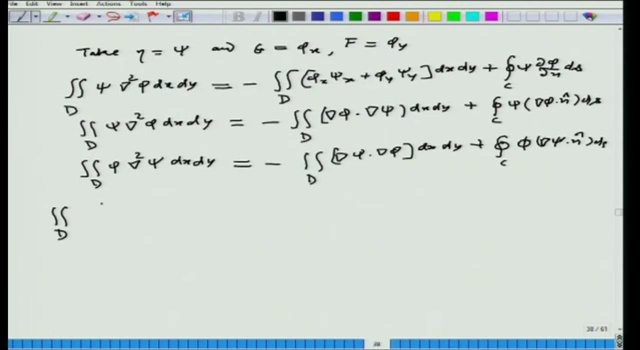 File Edit View Insert Actions Tools Help
Take η = Ψ and G = φ_x, F = φ_y
∬_D Ψ ∇²φ dx dy = − ∬_D [φ_x Ψ_x + φ_y Ψ_y] dx dy + ∮_C Ψ ∂φ/∂n ds
∬_D Ψ ∇²φ dx dy = − ∬_D (∇φ · ∇Ψ) dx dy + ∮_C Ψ (∇φ · n̂) ds
∬_D φ ∇²Ψ dx dy = − ∬_D [∇φ · ∇φ] dx dy + ∮_C φ (∇Ψ · n̂) ds
∬_D
38 / 61
38